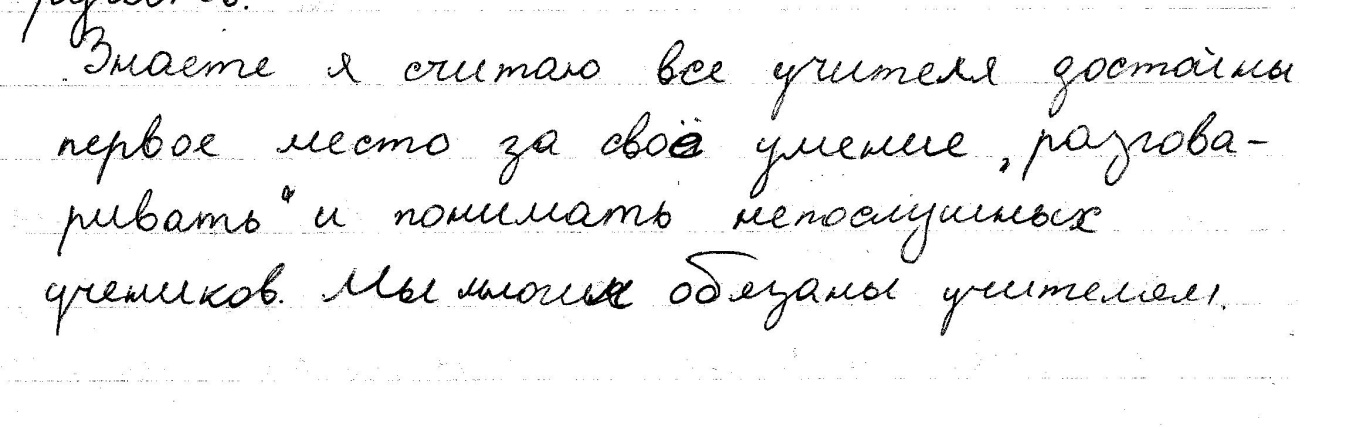 Знаете я считаю все учителя достойны
первое место за своё умение „разгова-
ривать“ и понимать непослушных
учеников. Мы многим обязаны учителям.